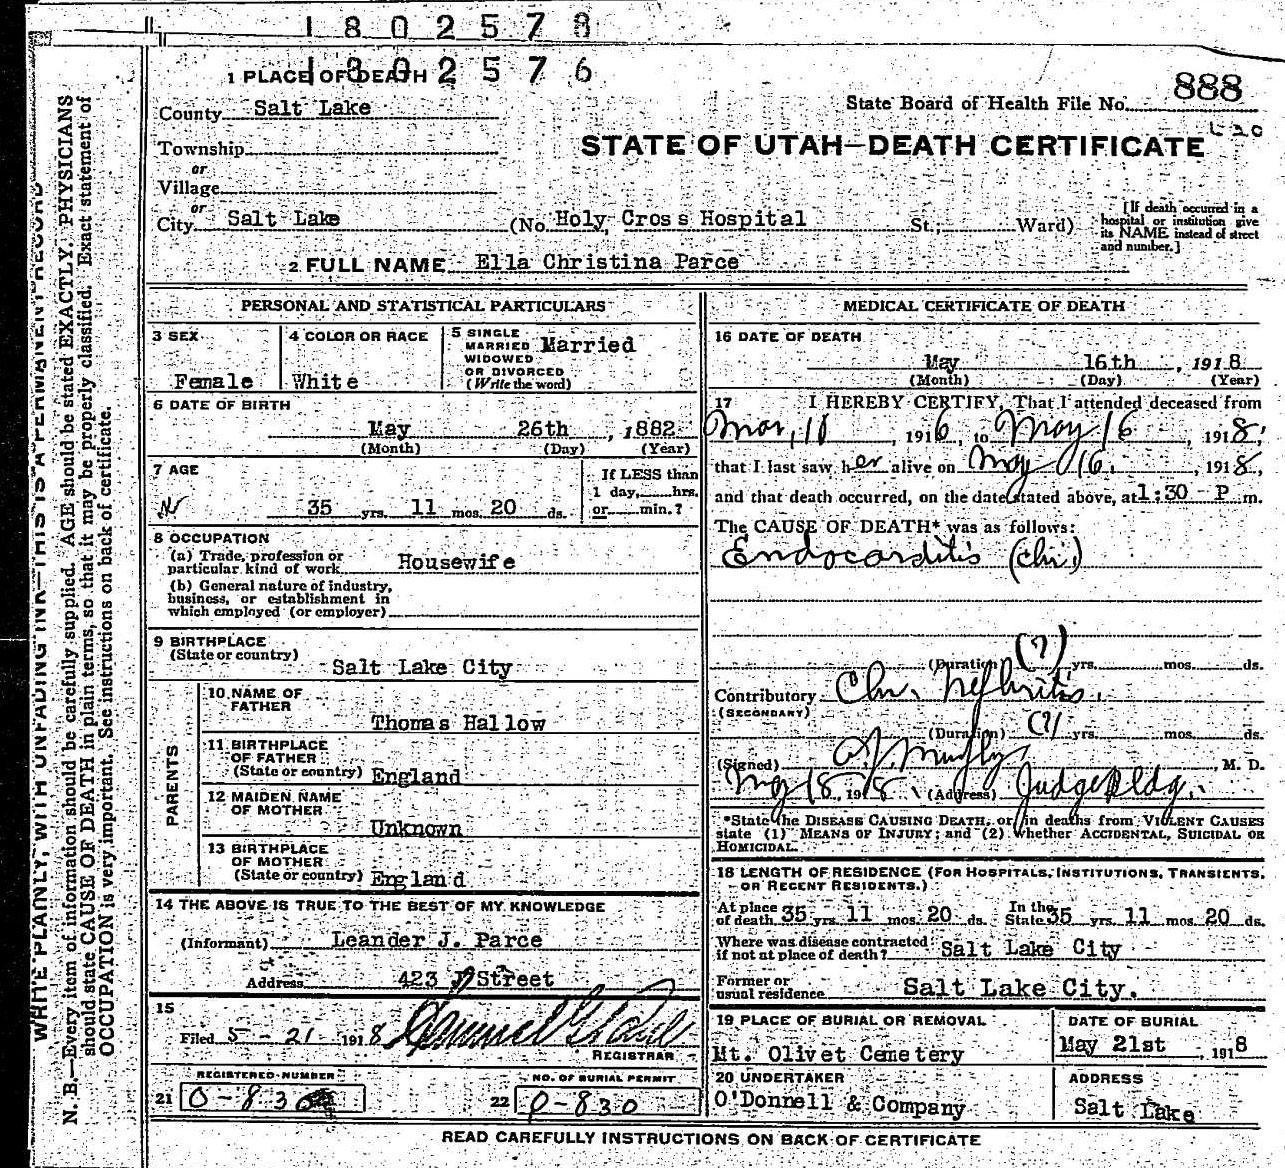 1802578
1802576
1 PLACE OF DEATH
County Salt Lake
State Board of Health File No. 888
Township
or
Village
or
STATE OF UTAH—DEATH CERTIFICATE
City Salt Lake (No. Holy Cross Hospital St.; Ward)
[If death occurred in a
hospital or institution give
its NAME instead of street
and number.]
2 FULL NAME Ella Christina Parce
PERSONAL AND STATISTICAL PARTICULARS
3 SEX
Female
4 COLOR OR RACE
White
5 SINGLE
MARRIED Married
WIDOWED
OR DIVORCED
(Write the word)
6 DATE OF BIRTH
May 26th, 1882
(Month) (Day) (Year)
7 AGE
35 yrs. 11 mos. 20 ds.
If LESS than
1 day, hrs.
or min.?
8 OCCUPATION
(a) Trade, profession or
particular kind of work Housewife
(b) General nature of industry,
business, or establishment in
which employed (or employer)
9 BIRTHPLACE
(State or country)
Salt Lake City
PARENTS
10 NAME OF
FATHER
Thomas Hallow
11 BIRTHPLACE
OF FATHER
(State or country) England
12 MAIDEN NAME
OF MOTHER
Unknown
13 BIRTHPLACE
OF MOTHER
(State or country) England
14 THE ABOVE IS TRUE TO THE BEST OF MY KNOWLEDGE
(Informant) Leander J. Parce
Address 423 Street
15
Filed 5-21 1918
REGISTRAR
REGISTERED NUMBER
21 0-830
NO. OF BURIAL PERMIT
22 0-830
MEDICAL CERTIFICATE OF DEATH
16 DATE OF DEATH
May 16th, 1918
(Month) (Day) (Year)
17 I HEREBY CERTIFY, That I attended deceased from
Mar, 11, 1916, to May 16, 1918,
that I last saw her alive on May 16, 1918,
and that death occurred, on the date stated above, at 1:30 P m.
The CAUSE OF DEATH* was as follows:
Endocarditis (chr.)
(Duration) (?) yrs. mos. ds.
Contributory Chr. Nephritis.
(SECONDARY)
(Duration) (?) yrs. mos. ds.
(Signed) Murphy, M. D.
May 18, 1918. (Address) Judge Bldg.
*State the DISEASE CAUSING DEATH, or, in deaths from VIOLENT CAUSES
state (1) MEANS OF INJURY; and (2) whether ACCIDENTAL, SUICIDAL OR
HOMICIDAL.
18 LENGTH OF RESIDENCE (FOR HOSPITALS, INSTITUTIONS, TRANSIENTS,
OR RECENT RESIDENTS.)
At place
of death 35 yrs 11 mos. 20 ds.
In the
State 35 yrs. 11 mos. 20 ds.
Where was disease contracted
if not at place of death? Salt Lake City
Former or
usual residence Salt Lake City.
19 PLACE OF BURIAL OR REMOVAL
Mt. Olivet Cemetery
DATE OF BURIAL
May 21st, 1918
20 UNDERTAKER
O'Donnell & Company
ADDRESS
Salt Lake
READ CAREFULLY INSTRUCTIONS ON BACK OF CERTIFICATE
WRITE PLAINLY, WITH UNFADING INK—THIS IS A PERMANENT RECORD
N. B.—Every item of information should be carefully supplied. AGE should be stated EXACTLY. PHYSICIANS
should state CAUSE OF DEATH in plain terms, so that it may be properly classified. Exact statement of
OCCUPATION is very important. See instructions on back of certificate.